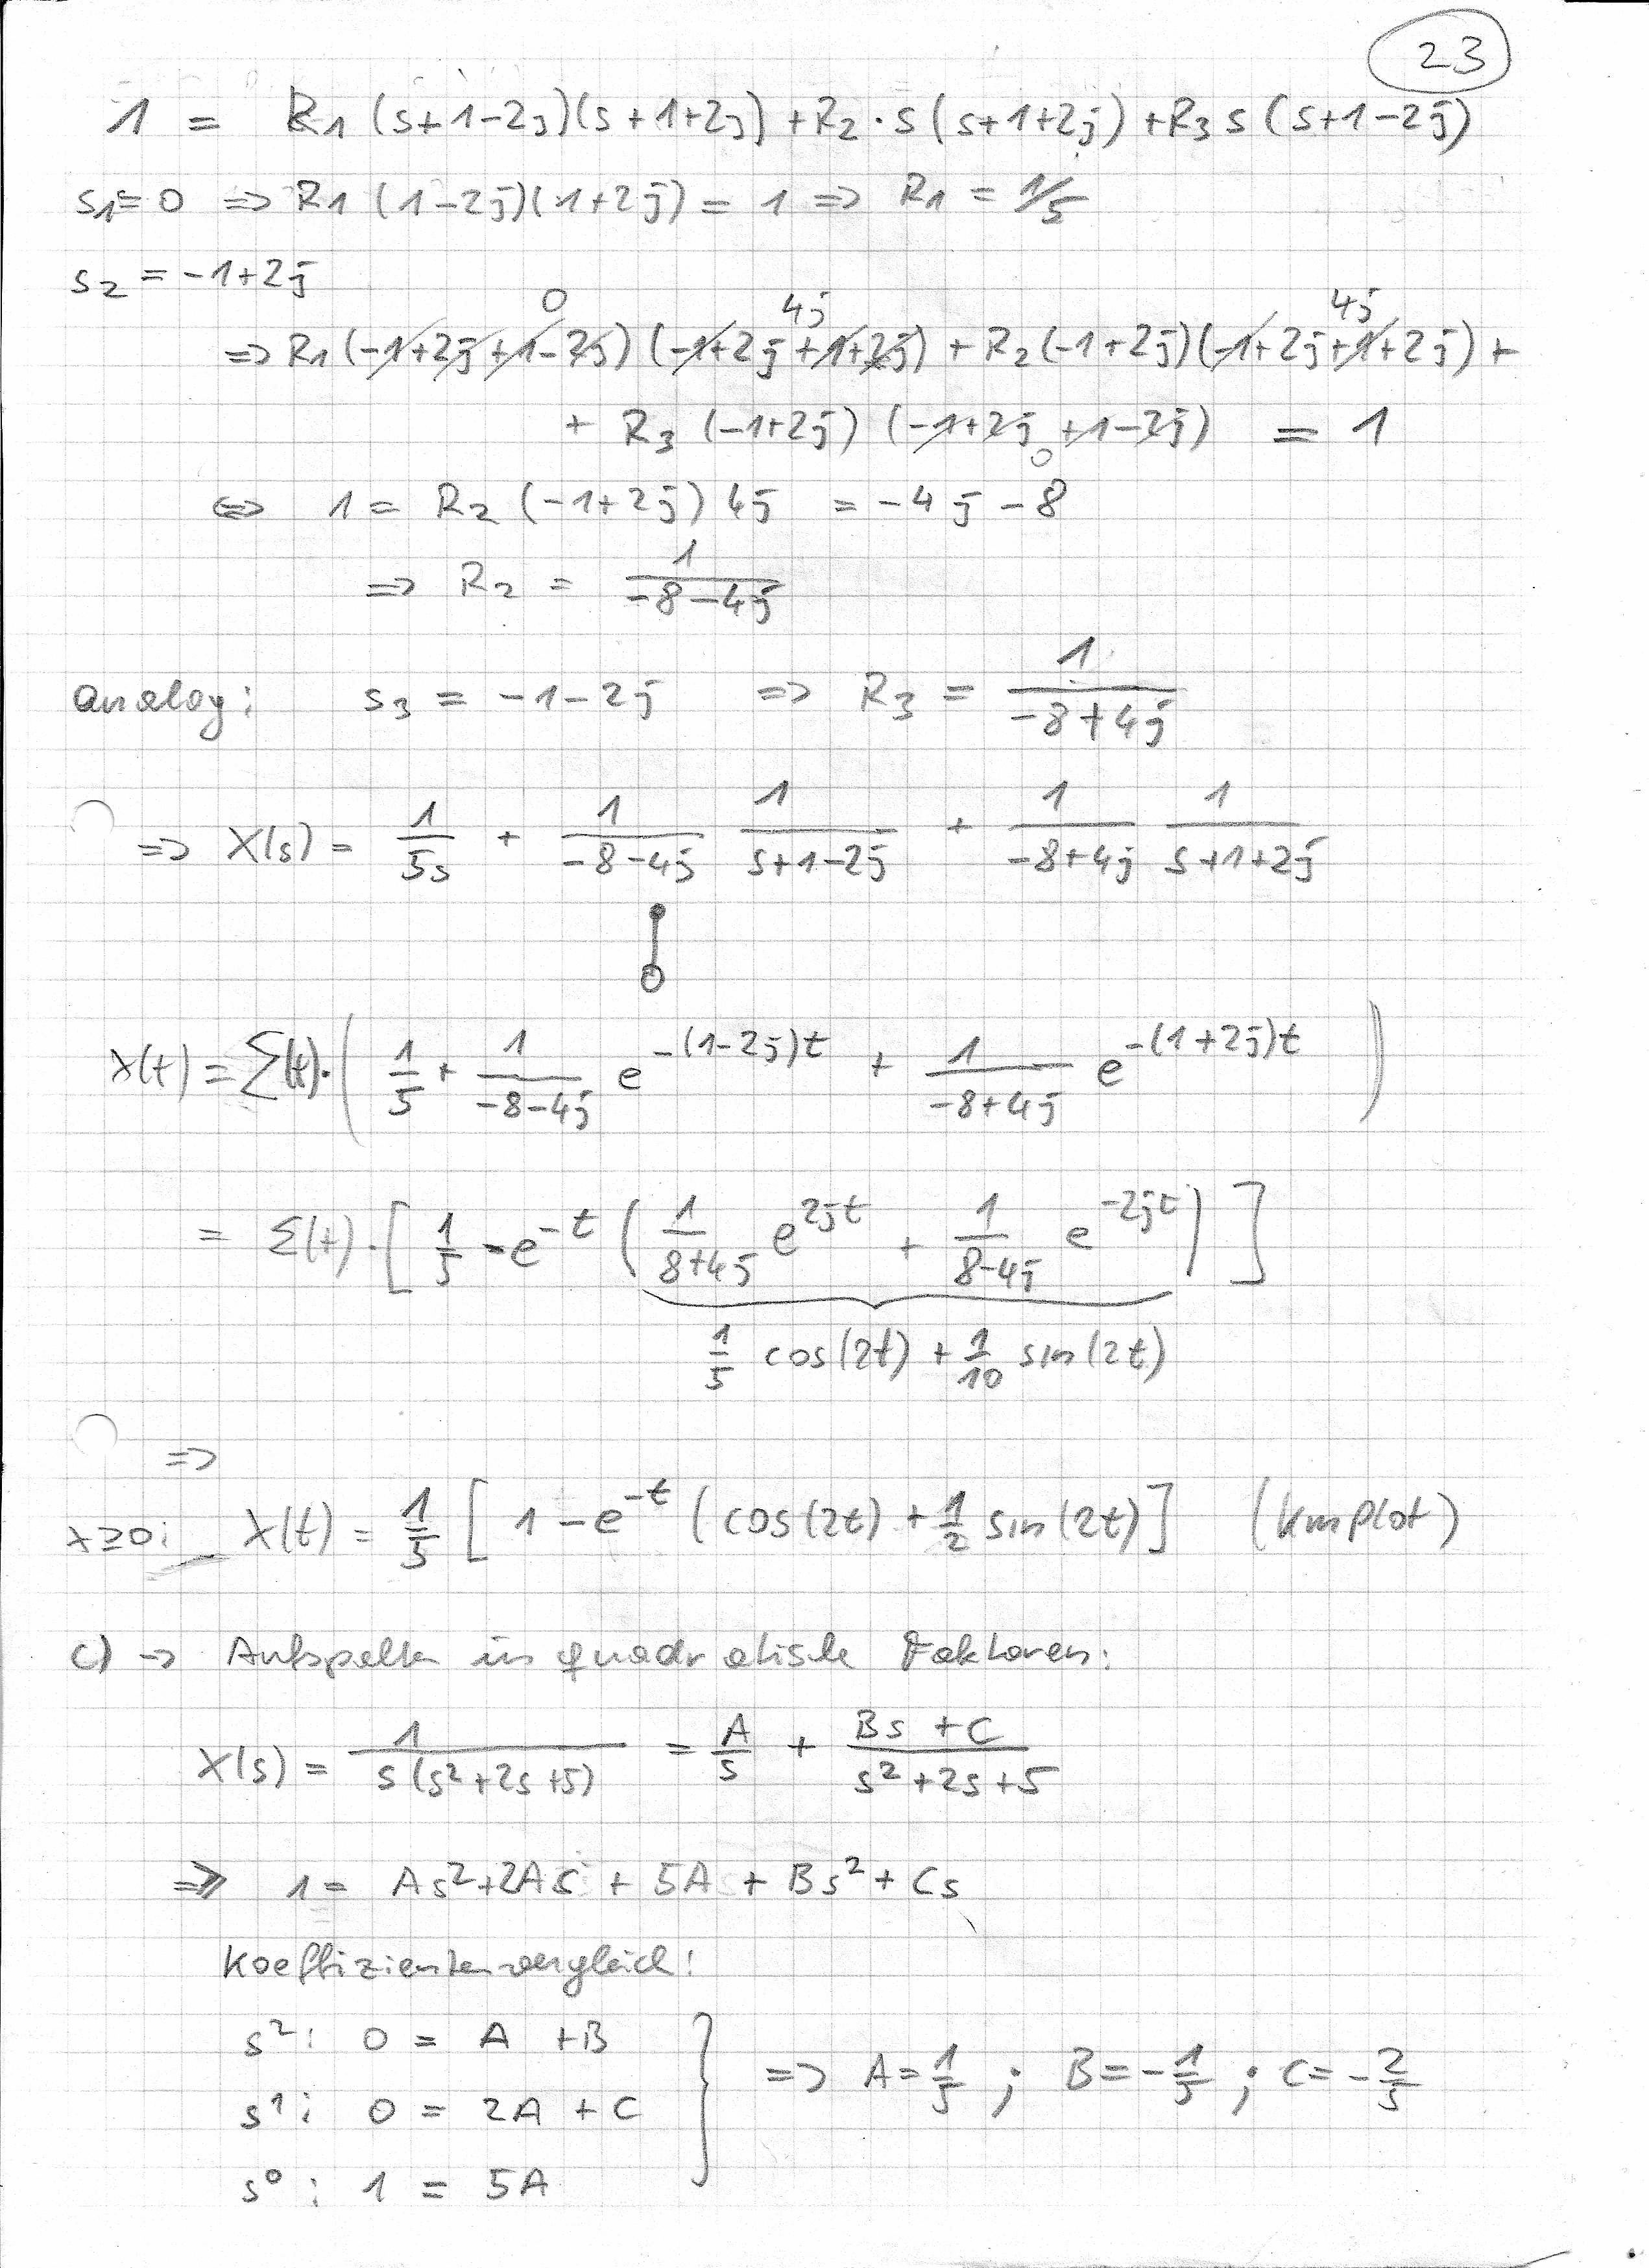 23
1 = R₁ (s+1-2j)(s+1+2j) + R₂ · s (s+1+2j) + R₃ s (s+1-2j)
s₁=0 => R₁ (1-2j)(1+2j) = 1 => R₁ = 1/5
s₂ = -1+2j
0 4j 4j
=> R₁ (-1+2j+1-2j) (-1+2j+1+2j) + R₂ (-1+2j)(-1+2j+1+2j) +
+ R₃ (-1+2j) (-1+2j+1-2j) = 1
0
<=> 1 = R₂ (-1+2j) 4j = -4j-8
=> R₂ = 1/(-8-4j)
analog: s₃ = -1-2j => R₃ = 1/(-8+4j)
=> X(s) = 1/5s + 1/(-8-4j) 1/(s+1-2j) + 1/(-8+4j) 1/(s+1+2j)
x(t) = Σ(t)·( 1/5 + 1/(-8-4j) e^-(1-2j)t + 1/(-8+4j) e^-(1+2j)t )
= Σ(t)·[ 1/5 - e^-t ( 1/(8+4j) e^2jt + 1/(8-4j) e^-2jt ) ]
1/5 cos(2t) + 1/10 sin(2t)
=>
x≥0: x(t) = 1/5 [ 1 - e^-t ( cos(2t) + 1/2 sin(2t) ] (KmPlot)
c) → Aufspalten in quadratische Faktoren:
X(s) = 1/(s(s²+2s+5)) = A/s + (Bs+C)/(s²+2s+5)
=> 1 = As²+2As + 5A + Bs² + Cs
Koeffizientenvergleich:
s²: 0 = A + B
s¹: 0 = 2A + C => A = 1/5 ; B = -1/5 ; C = -2/5
s⁰: 1 = 5A